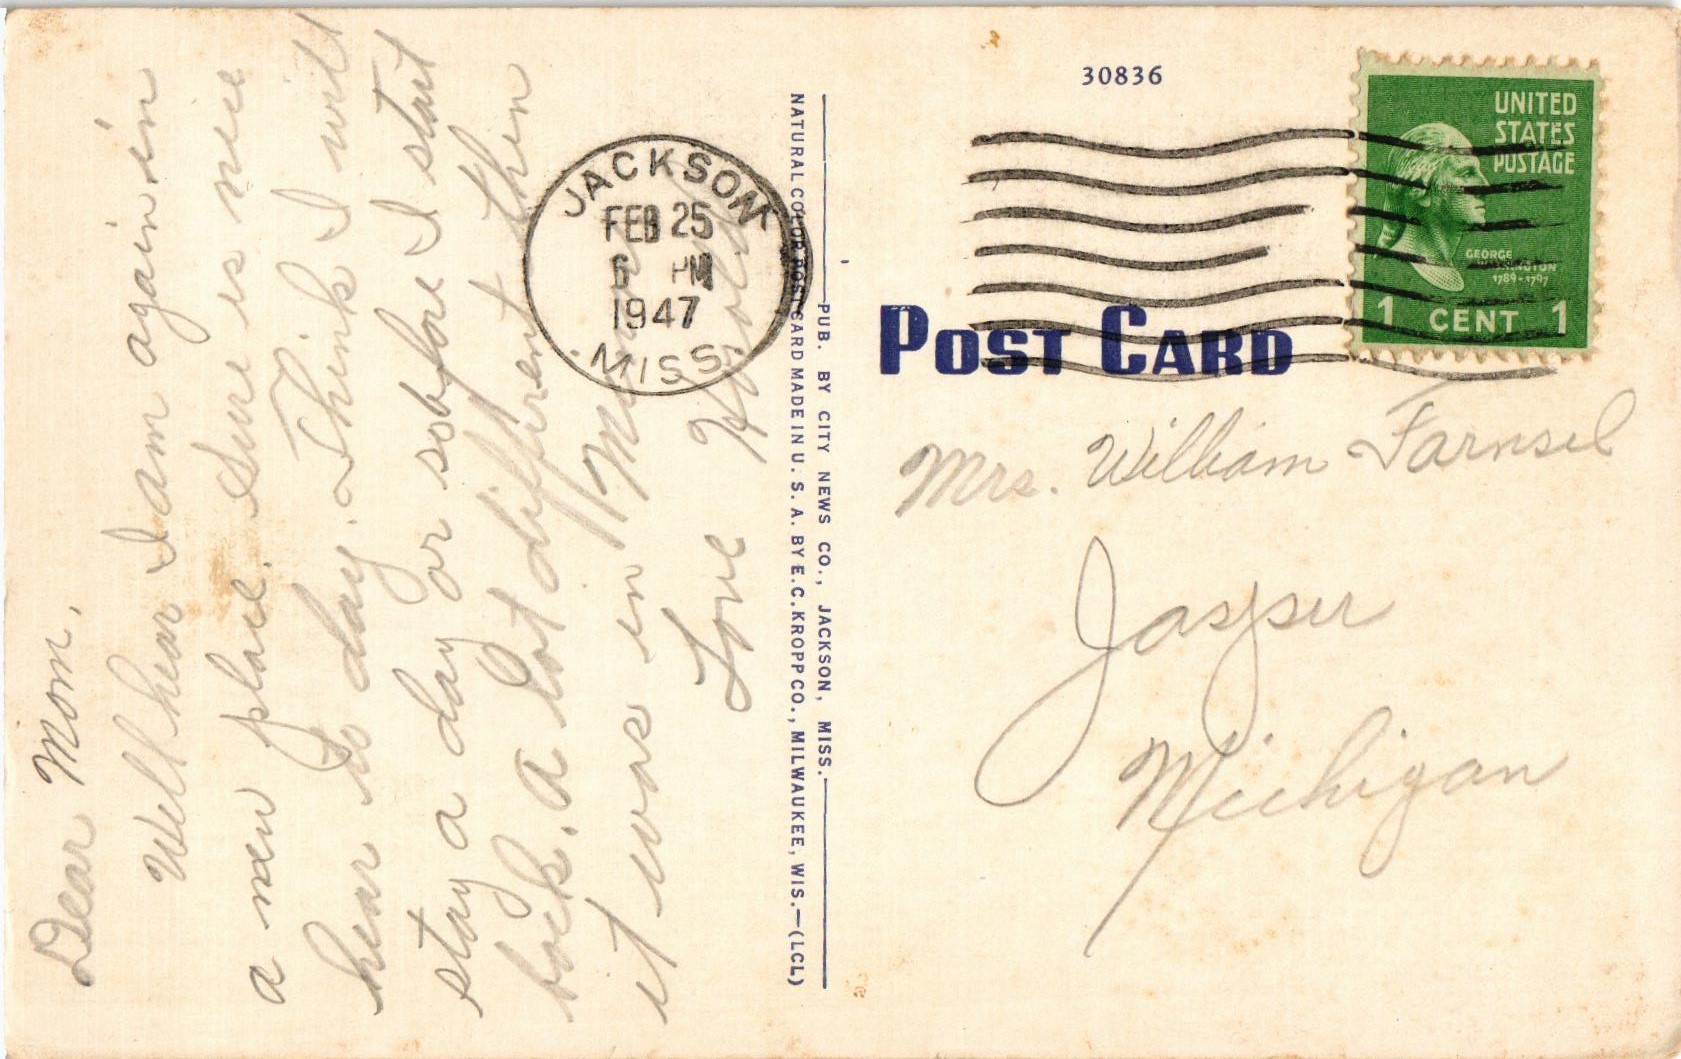 Dear Mom,
Well hear I am again in
a new place. Sure is nice
hear to day. Think I will
stay a day or so before I start
back. A lot different then
it was in
Love Harold
JACKSON
FEB 25
6 PM
1947
MISS.
PUB. BY CITY NEWS CO., JACKSON, MISS.
NATURAL COLOR POST CARD MADE IN U. S. A. BY E. C. KROPP CO., MILWAUKEE, WIS.—(LCL)
30836
UNITED
STATES
POSTAGE
GEORGE
WASHINGTON
1789-1797
1 CENT 1
POST CARD
Mrs. William Farnsel
Jasper
Michigan